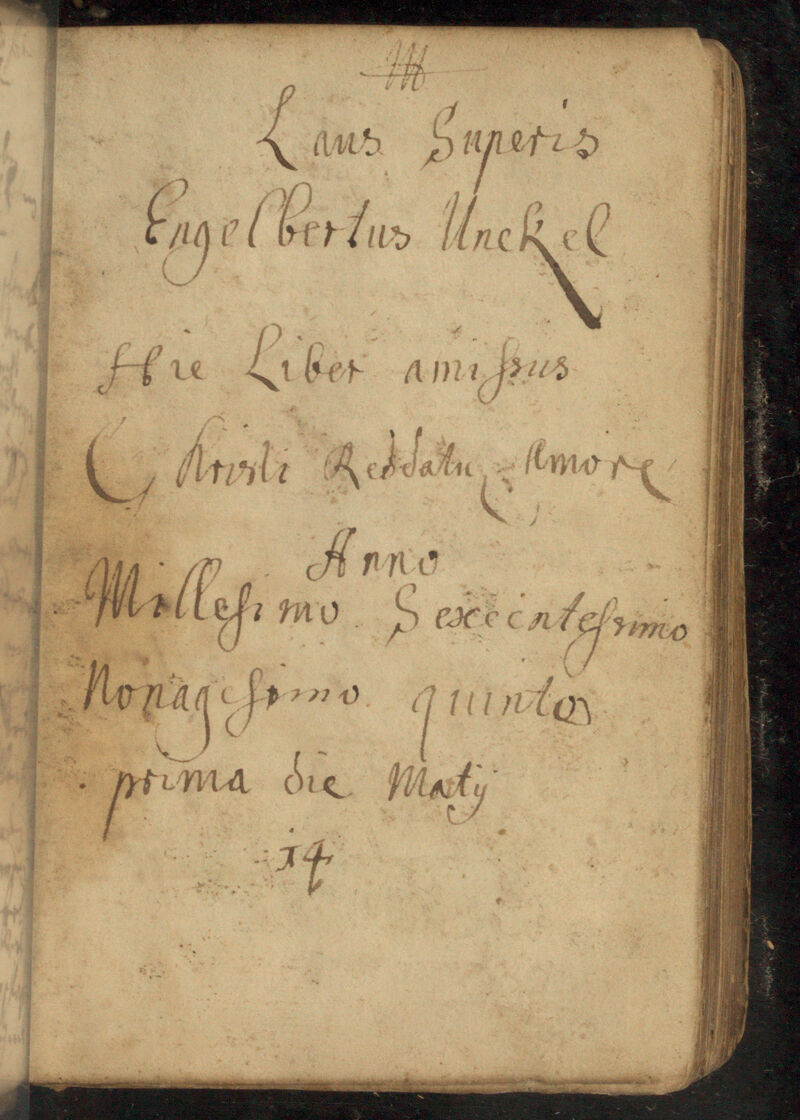 Laus Superis
Engelbertus Unckel
Hic Liber amissus
Christi Reddatur Amore
Anno
Millesimo Sexcentessimo
Nonagesimo quinto
prima die Maÿ
14